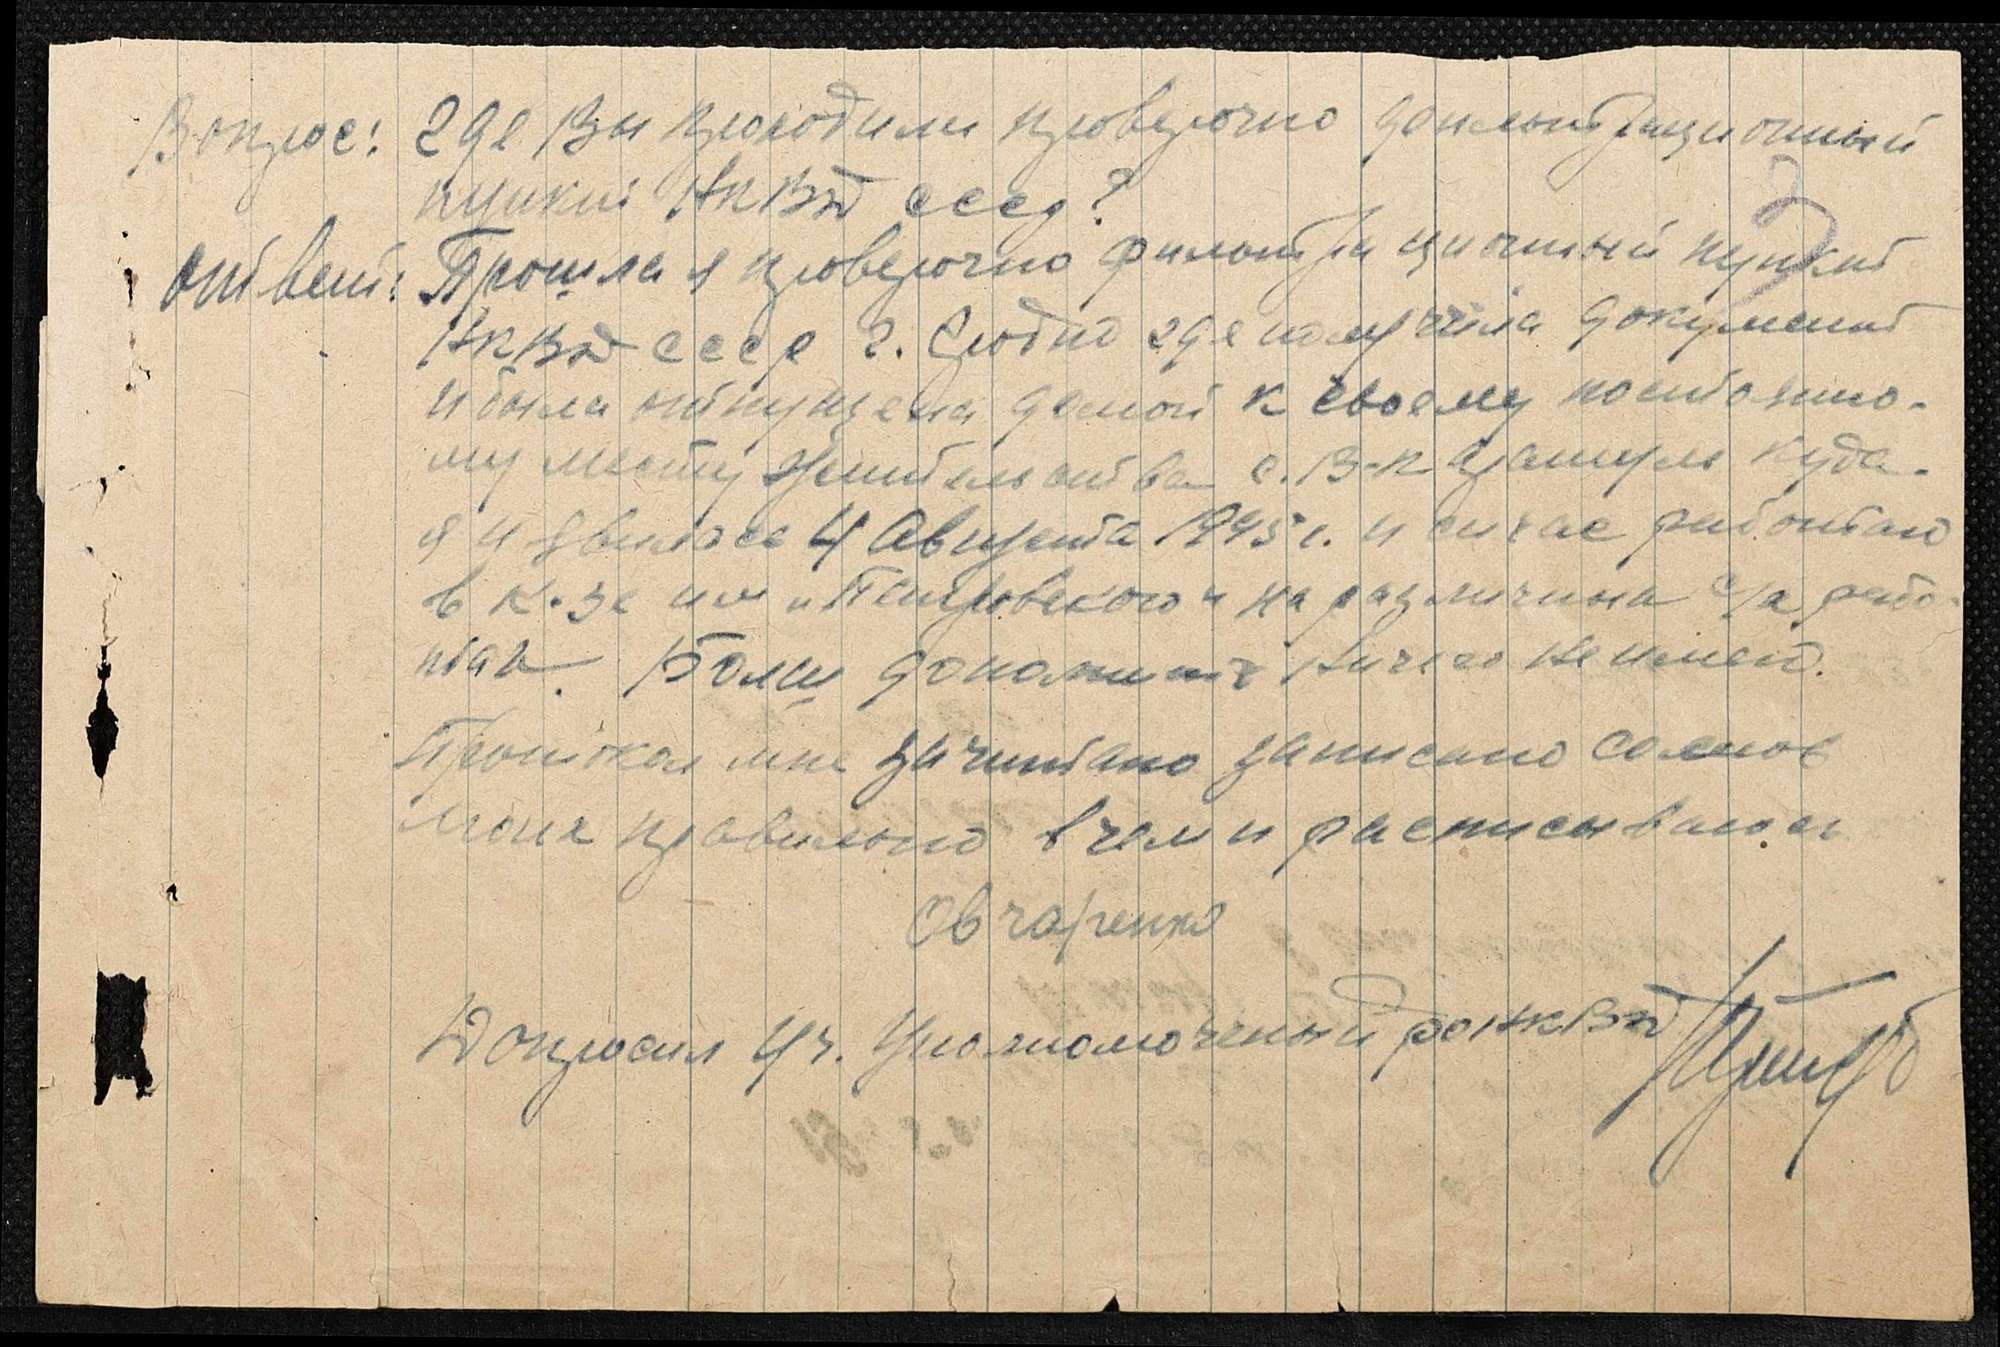 Вопрос: где Вы проходили проверочно фильтрационный
пункт НКВД СССР?
Ответ: Прошла я проверочно фильтрационный пункт
НКВД СССР г. Гродно где получила документ
и была отпущена домой к своему постоянно-
му месту жительства с. В-к куда-
я и явилась 4 Августа 1945 г. и сичас работаю
в к-зе им "Петровского" на различных с/х рабо-
тах. Больш дополнить ничего не имею.
Протокол мне зачитано записано сослов
моих правильно в чем и расписываюсь
Овчаренко
Допросил Уч. Уполномоченый РОНКВД